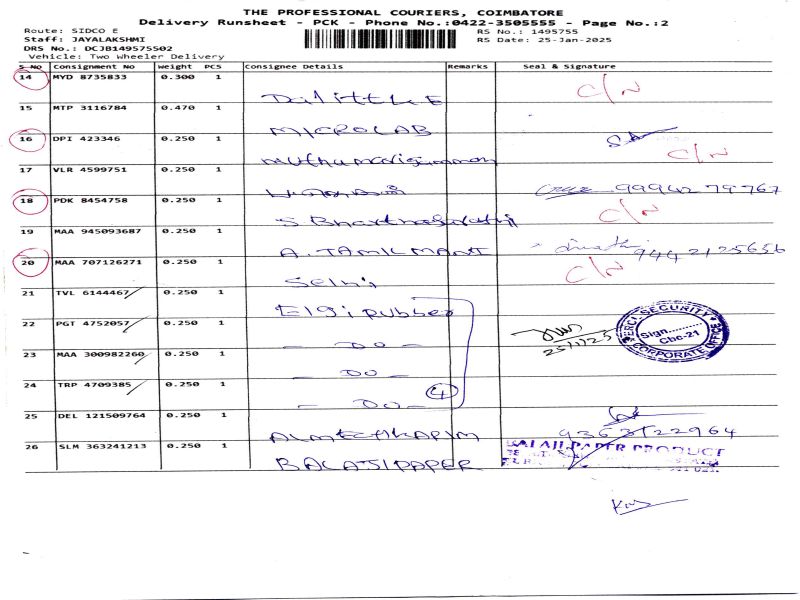 THE PROFESSIONAL COURIERS, COIMBATORE
Delivery Runsheet - PCK - Phone No.:0422-3505555 - Page No.:2
Route: SIDCO E
Staff: JAYALAKSHMI
DRS No.: DCJB149575502
Vehicle: Two Wheeler Delivery
RS No.: 1495755
RS Date: 25-Jan-2025
S No Consignment No Weight PCS Consignee Details Remarks Seal & Signature
14 MYD 8735833 0.300 1 C/N
15 MTP 3116784 0.470 1 MICROLAB
16 DPI 423346 0.250 1 C/N
17 VLR 4599751 0.250 1 99942 79767
18 PDK 8454758 0.250 1 C/N
19 MAA 945093687 0.250 1 A. TAMILMANI 9442125656
20 MAA 707126271 0.250 1 C/N
21 TVL 6144467 0.250 1 Elgi rubber
22 PGT 4752057 0.250 1 - DO -
23 MAA 300982260 0.250 1 - DO -
24 TRP 4709385 0.250 1 - DO - 4
25 DEL 121509764 0.250 1
26 SLM 363241213 0.250 1 BALAJI PAPER
25/1/25
SECURITY
Sign.........
Cbe-21
CORPORATE OFFICE
9363122964
BALAJI PAPER PRODUCT